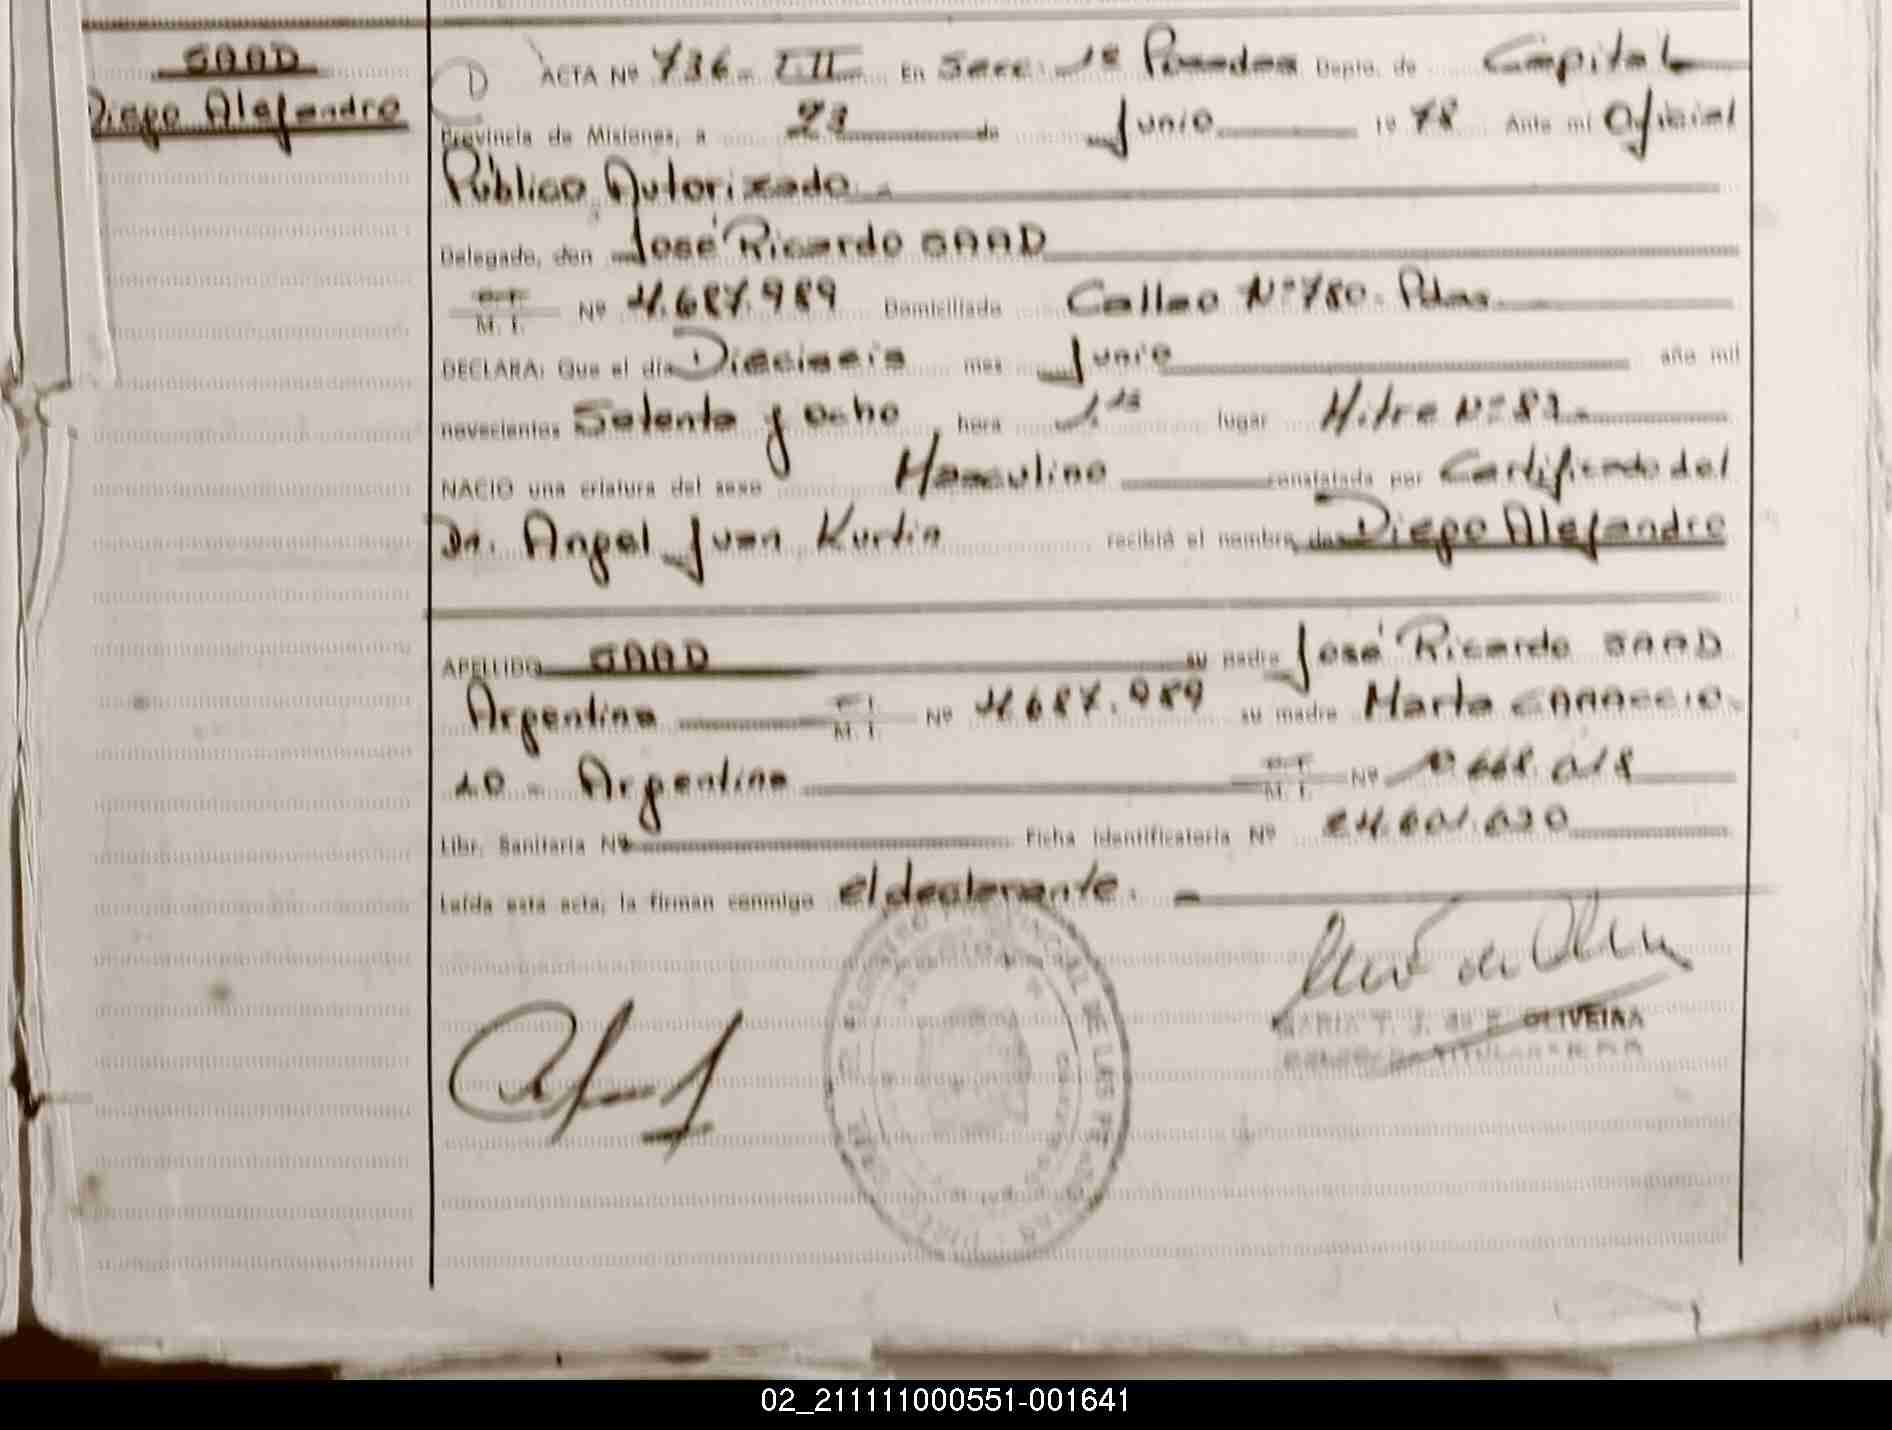 SAAD
Diego Alejandro
ACTA Nº 736- III En Secc. 1º Posadas Depto. de Capital
Provincia de Misiones, a 23 de Junio 19 78 Ante mí Oficial
Público Autorizado.-
Delegado, don José Ricardo SAAD
C.I. M. I. Nº 4.687.989 Domiciliado Callao Nº 780. Pdas.
DECLARA: Que el día Dieciseis mes Junio año mil
novecientos Setenta y ocho hora lugar Mitre Nº
NACIO una criatura del sexo Masculino constatada por Certificado del
Dr. Angel Juan Kurtin recibió el nombre de Diego Alejandro
APELLIDO SAAD su padre José Ricardo SAAD
Argentino C.I. M. I. Nº 4.687.989 su madre Marta CARACCIO-
LO - Argentina C.I. M. I. Nº
Libr. Sanitaria Nº Ficha identificatoria Nº
Leída esta acta, la firman conmigo el declarante. -
MARIA T. J. de OLIVEIRA
TITULAR
02_211111000551-001641